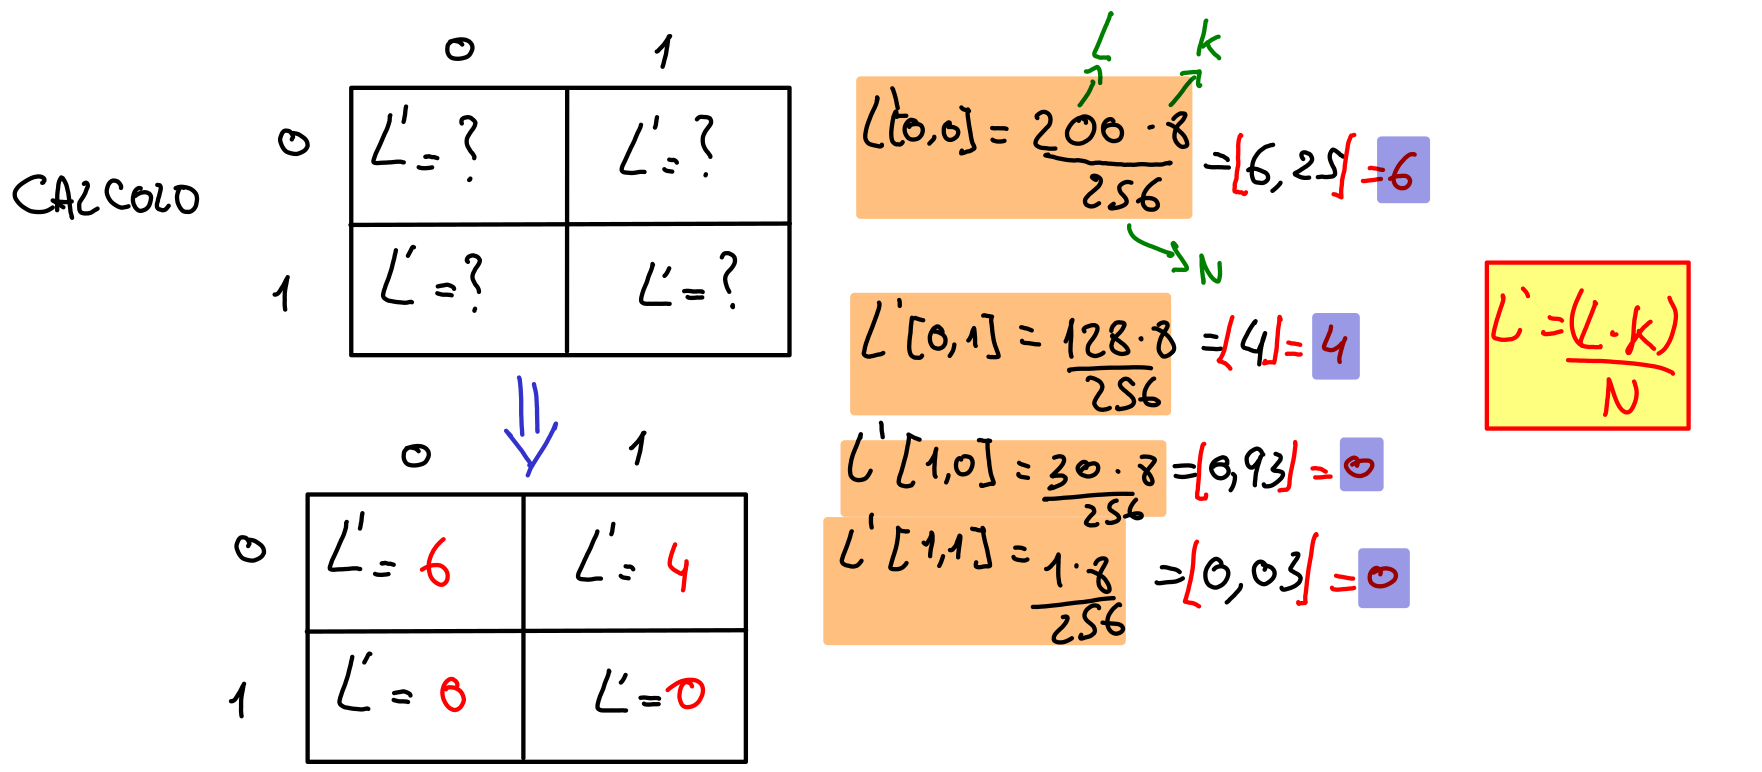 CALCOLO
0 1
0 L' = ? L' = ?
1 L' = ? L' = ?
0 1
0 L' = 6 L' = 4
1 L' = 0 L' = 0
L K
L'[0,0] = 200 · 8 / 256 = ⌊6,25⌋ = 6
N
L'[0,1] = 128 · 8 / 256 = ⌊4⌋ = 4
L'[1,0] = 30 · 8 / 256 = ⌊0,93⌋ = 0
L'[1,1] = 1 · 8 / 256 = ⌊0,03⌋ = 0
L' = (L · K) / N